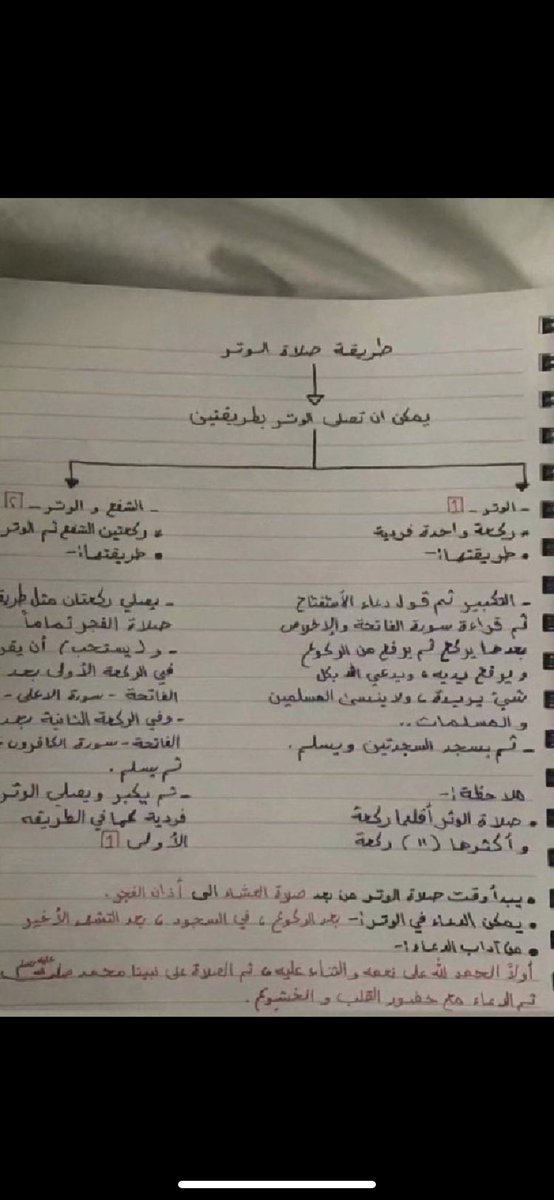 طريقة صلاة الوتر
يمكن ان تصلى الوتر بطريقتين
- الوتر - 1
* ركعة واحدة فردية
• طريقتها :-
- التكبير ثم قول دعاء الأستفتاح
ثم قراءة سورة الفاتحة والإخلاص
بعدها يركع ثم يرفع من الركوع
و يرفع يديه ، ويدعي الله بكل
شيء يريده ، ولا ينسى المسلمين
و المسلمات ..
- ثم يسجد السجدتين ويسلم .
ملاحظة :-
• صلاة الوتر أقلها ركعة
و أكثرها (١١) ركعة
- الشفع و الوتر - ٢
* ركعتين الشفع ثم الوتر
• طريقتها :-
- يصلي ركعتان مثل
صلاة الفجر تماماً
- و ( يستحب ) أن
في الركعة الأولى بعد
الفاتحة - سورة الاعلى -
- وفي الركعة الثانية بعد
الفاتحة - سورة الكافرون -
ثم يسلم .
- ثم يكبر ويصلى الوتر
فردية كما في الطريقه
الأولى 1
• يبدأ وقت صلاة الوتر من بعد صلاة العشاء الى أذان الفجر .
• يمكن الدعاء في الوتر :- بعد الركوع ، في السجود ، بعد التشهد الأخير
• من آداب الدعاء :-
أولاً الحمد لله على نعمه و الثناء عليه ، ثم الصلاة على نبينا محمد صلى الله عليه وسلم
ثم الدعاء مع حضور القلب و الخشوع .